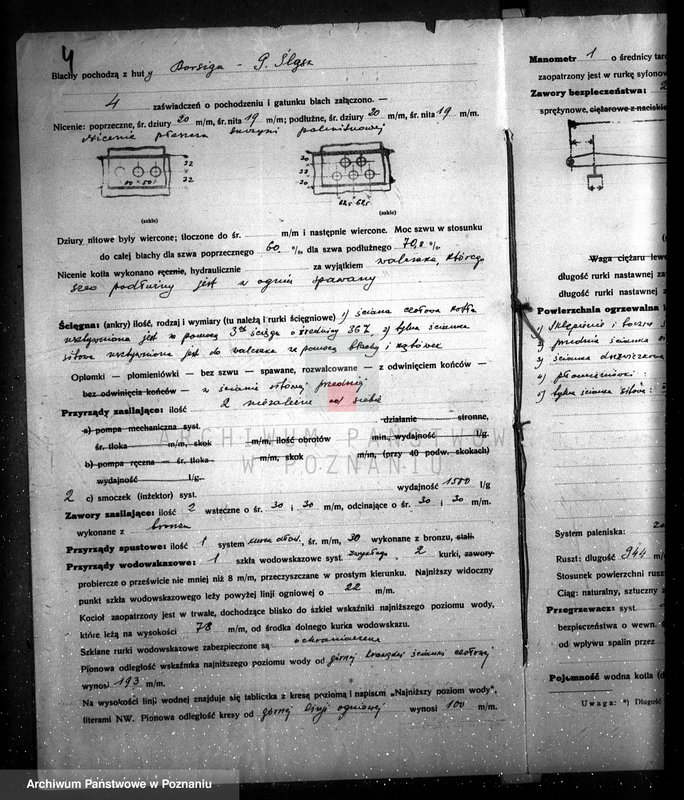 4
Blachy pochodzą z huty Borsiga - G. Śląsk
4 zaświadczeń o pochodzeniu i gatunku blach załączono. —
Nicenie: poprzeczne, śr. dziury 20 m/m, śr. nita 19 m/m; podłużne, śr. dziury 20 m/m, śr. nita 19 m/m.
Nicenie płaszcza skrzyni paleniskowej
32
32
50 50
30
30
62,5 62,5
(szkic)
(szkic)
Dziury nitowe były wiercone; tłoczone do śr. m/m i następnie wiercone. Moc szwu w stosunku
do całej blachy dla szwa poprzecznego 60 % dla szwa podłużnego 70,8 %
Nicenie kotła wykonano ręcznie, hydraulicznie za wyjątkiem walczaka, którego
szew podłużny jest w ogniu spawany
Ścięgna: (ankry) ilość, rodzaj i wymiary (tu należą i rurki ścięgniowe) 1) ściana czołowa kotła
usztywniona jest za pomocą 3 ścięgn o średnicy 36 2) tylna ścianka
sitowa usztywniona jest do walczaka za pomocą blachy i kątówek
Opłomki — płomieniówki — bez szwu — spawane, rozwalcowane — z odwinięciem końców —
bez odwinięcia końców — w ścianie sitowej przedniej
Przyrządy zasilające: ilość 2 niezależne od siebie
a) pompa mechaniczna syst. działanie stronne,
śr. tłoka m/m, skok m/m, ilość obrotów min, wydajność l/g
b) pompa ręczna — śr. tłoka m/m, skok m/m, (przy 40 podw. skokach)
wydajność l/g
2 c) smoczek (inżektor) syst. wydajność 1500 l/g
Zawory zasilające: ilość 2 wsteczne o śr. 30 i 30 m/m, odcinające o śr. 30 i 30 m/m.
wykonane z bronzu
Przyrządy spustowe: ilość 1 system śr. m/m, 30 wykonane z bronzu, stali.
Przyrządy wodowskazowe: 1 szkła wodowskazowe syst. zwykłego, 2 kurki, zawory
probiercze o prześwicie nie mniej niż 8 m/m, przeczyszczane w prostym kierunku. Najniższy widoczny
punkt szkła wodowskazowego leży powyżej linji ogniowej o 22 m/m.
Kocioł zaopatrzony jest w trwałe, dochodzące blisko do szkieł wskaźniki najniższego poziomu wody,
które leżą na wysokości 78 m/m, od środka dolnego kurka wodowskazu.
Szklane rurki wodowskazowe zabezpieczone są ochraniaczem
Pionowa odległość wskaźnika najniższego poziomu wody od górnej krawędzi ścianki czołowej
wynosi 193 m/m.
Na wysokości linji wodnej znajduje się tabliczka z kresą poziomą i napisem „Najniższy poziom wody",
literami NW. Pionowa odległość kresy od górnej linji ogniowej wynosi 100 m/m.
Manometr 1 o średnicy tarc
zaopatrzony jest w rurkę syfono
Zawory bezpieczeństwa: 2
sprężynowe, ciężarowe z naciskie
Waga ciężaru lewe
długość rurki nastawnej za
długość rurki nastawnej
Powierzchnia ogrzewalna k
1) Sklepienie i boczn
2) przednia ścianka
3) ścianka drzwiczkowa
4) płomieniówki:
5) tylna ścianka sitowa:
System paleniska:
Ruszt: długość 944 m/
Stosunek powierzchni rusz
Ciąg: naturalny, sztuczny z
Przegrzewacz: syst.
bezpieczeństwa o wewn.
od wpływu spalin przez
Pojemność wodna kotła (d
Uwaga: *) Długość
ARCHIWUM PAŃSTWOWE
W POZNANIU
Archiwum Państwowe w Poznaniu